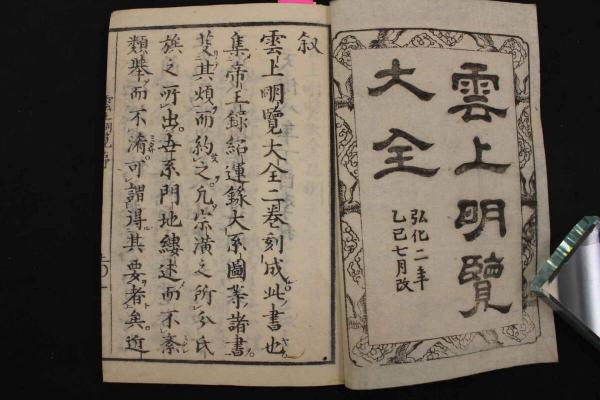 雲上明覽
大全
弘化二年
乙巳七月改
叙
雲上明覽大全二巻刻成此書也
集帝王録紹運錄大系圖等諸書
芟其煩而約之凡宗潢之所分氏
族之所出与系門地縷述而不紊
類舉而不淆可謂得其要者矣近
雲上明覧序